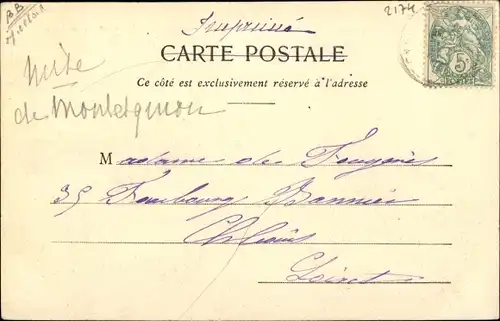 2174
Imprimé
CARTE POSTALE
Ce côté est exclusivement réservé à l'adresse
Mise
de Montesquiou
Madame de Fougères
35 Faubourg Bannier
Orléans
Loiret
5